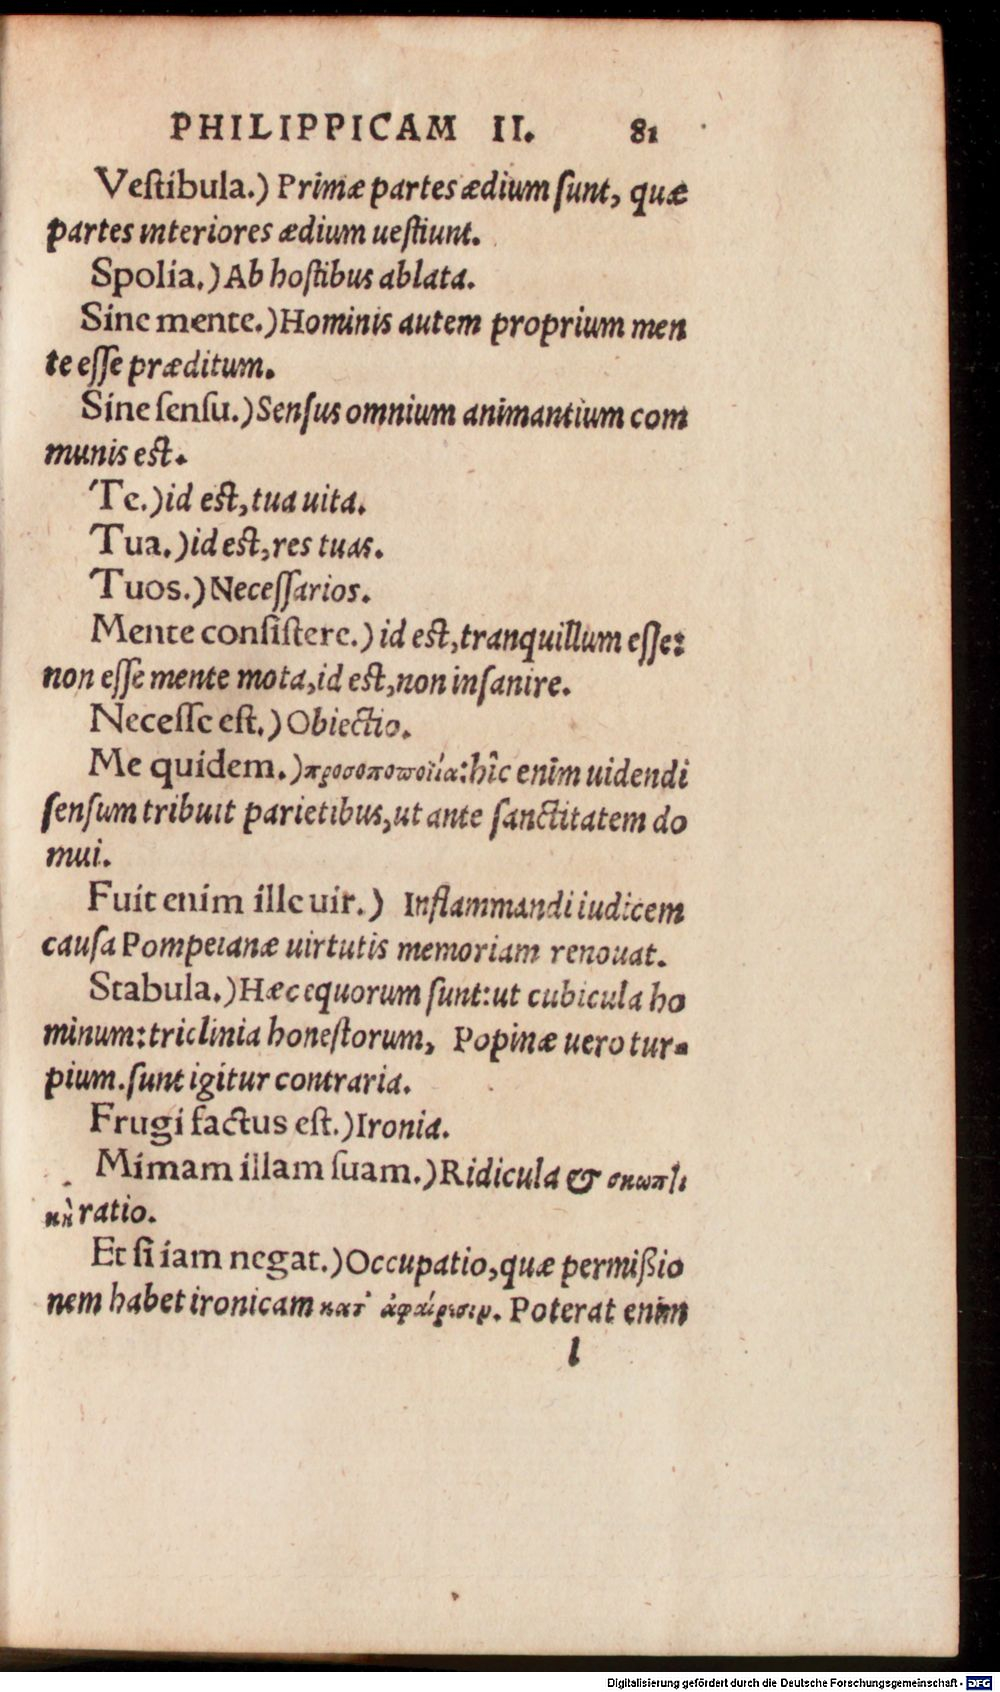 PHILIPPICAM II. 81
Veſtibula.) Primæ partes ædium ſunt, quæ
partes interiores ædium ueſtiunt.
Spolia.) Ab hoſtibus ablata.
Sine mente.) Hominis autem proprium men
te eſſe præditum.
Sine ſenſu.) Senſus omnium animantium com
munis est.
Te.) id est, tua uita.
Tua.) id est, res tuas.
Tuos.) Neceſſarios.
Mente conſiſtere.) id est, tranquillum eſſe:
non eſſe mente mota, id est, non inſanire.
Neceſſe eſt.) Obiectio.
Me quidem.) προσοποποιΐα: hîc enim uidendi
ſenſum tribuit parietibus, ut ante ſanctitatem do
mui.
Fuit enim ille uir.) Inflammandi iudicem
cauſa Pompeianæ uirtutis memoriam renouat.
Stabula.) Hæc equorum ſunt: ut cubicula ho
minum: triclinia honeſtorum, Popinæ uero tur-
pium. ſunt igitur contraria.
Frugi factus eſt.) Ironia.
Mimam illam ſuam.) Ridicula & σκωπτι
κὴ ratio.
Et ſi iam negat.) Occupatio, quæ permißio
nem habet ironicam κατ' ἀφαίρεσιν. Poterat enim
l
Digitalisierung gefördert durch die Deutsche Forschungsgemeinschaft - DFG